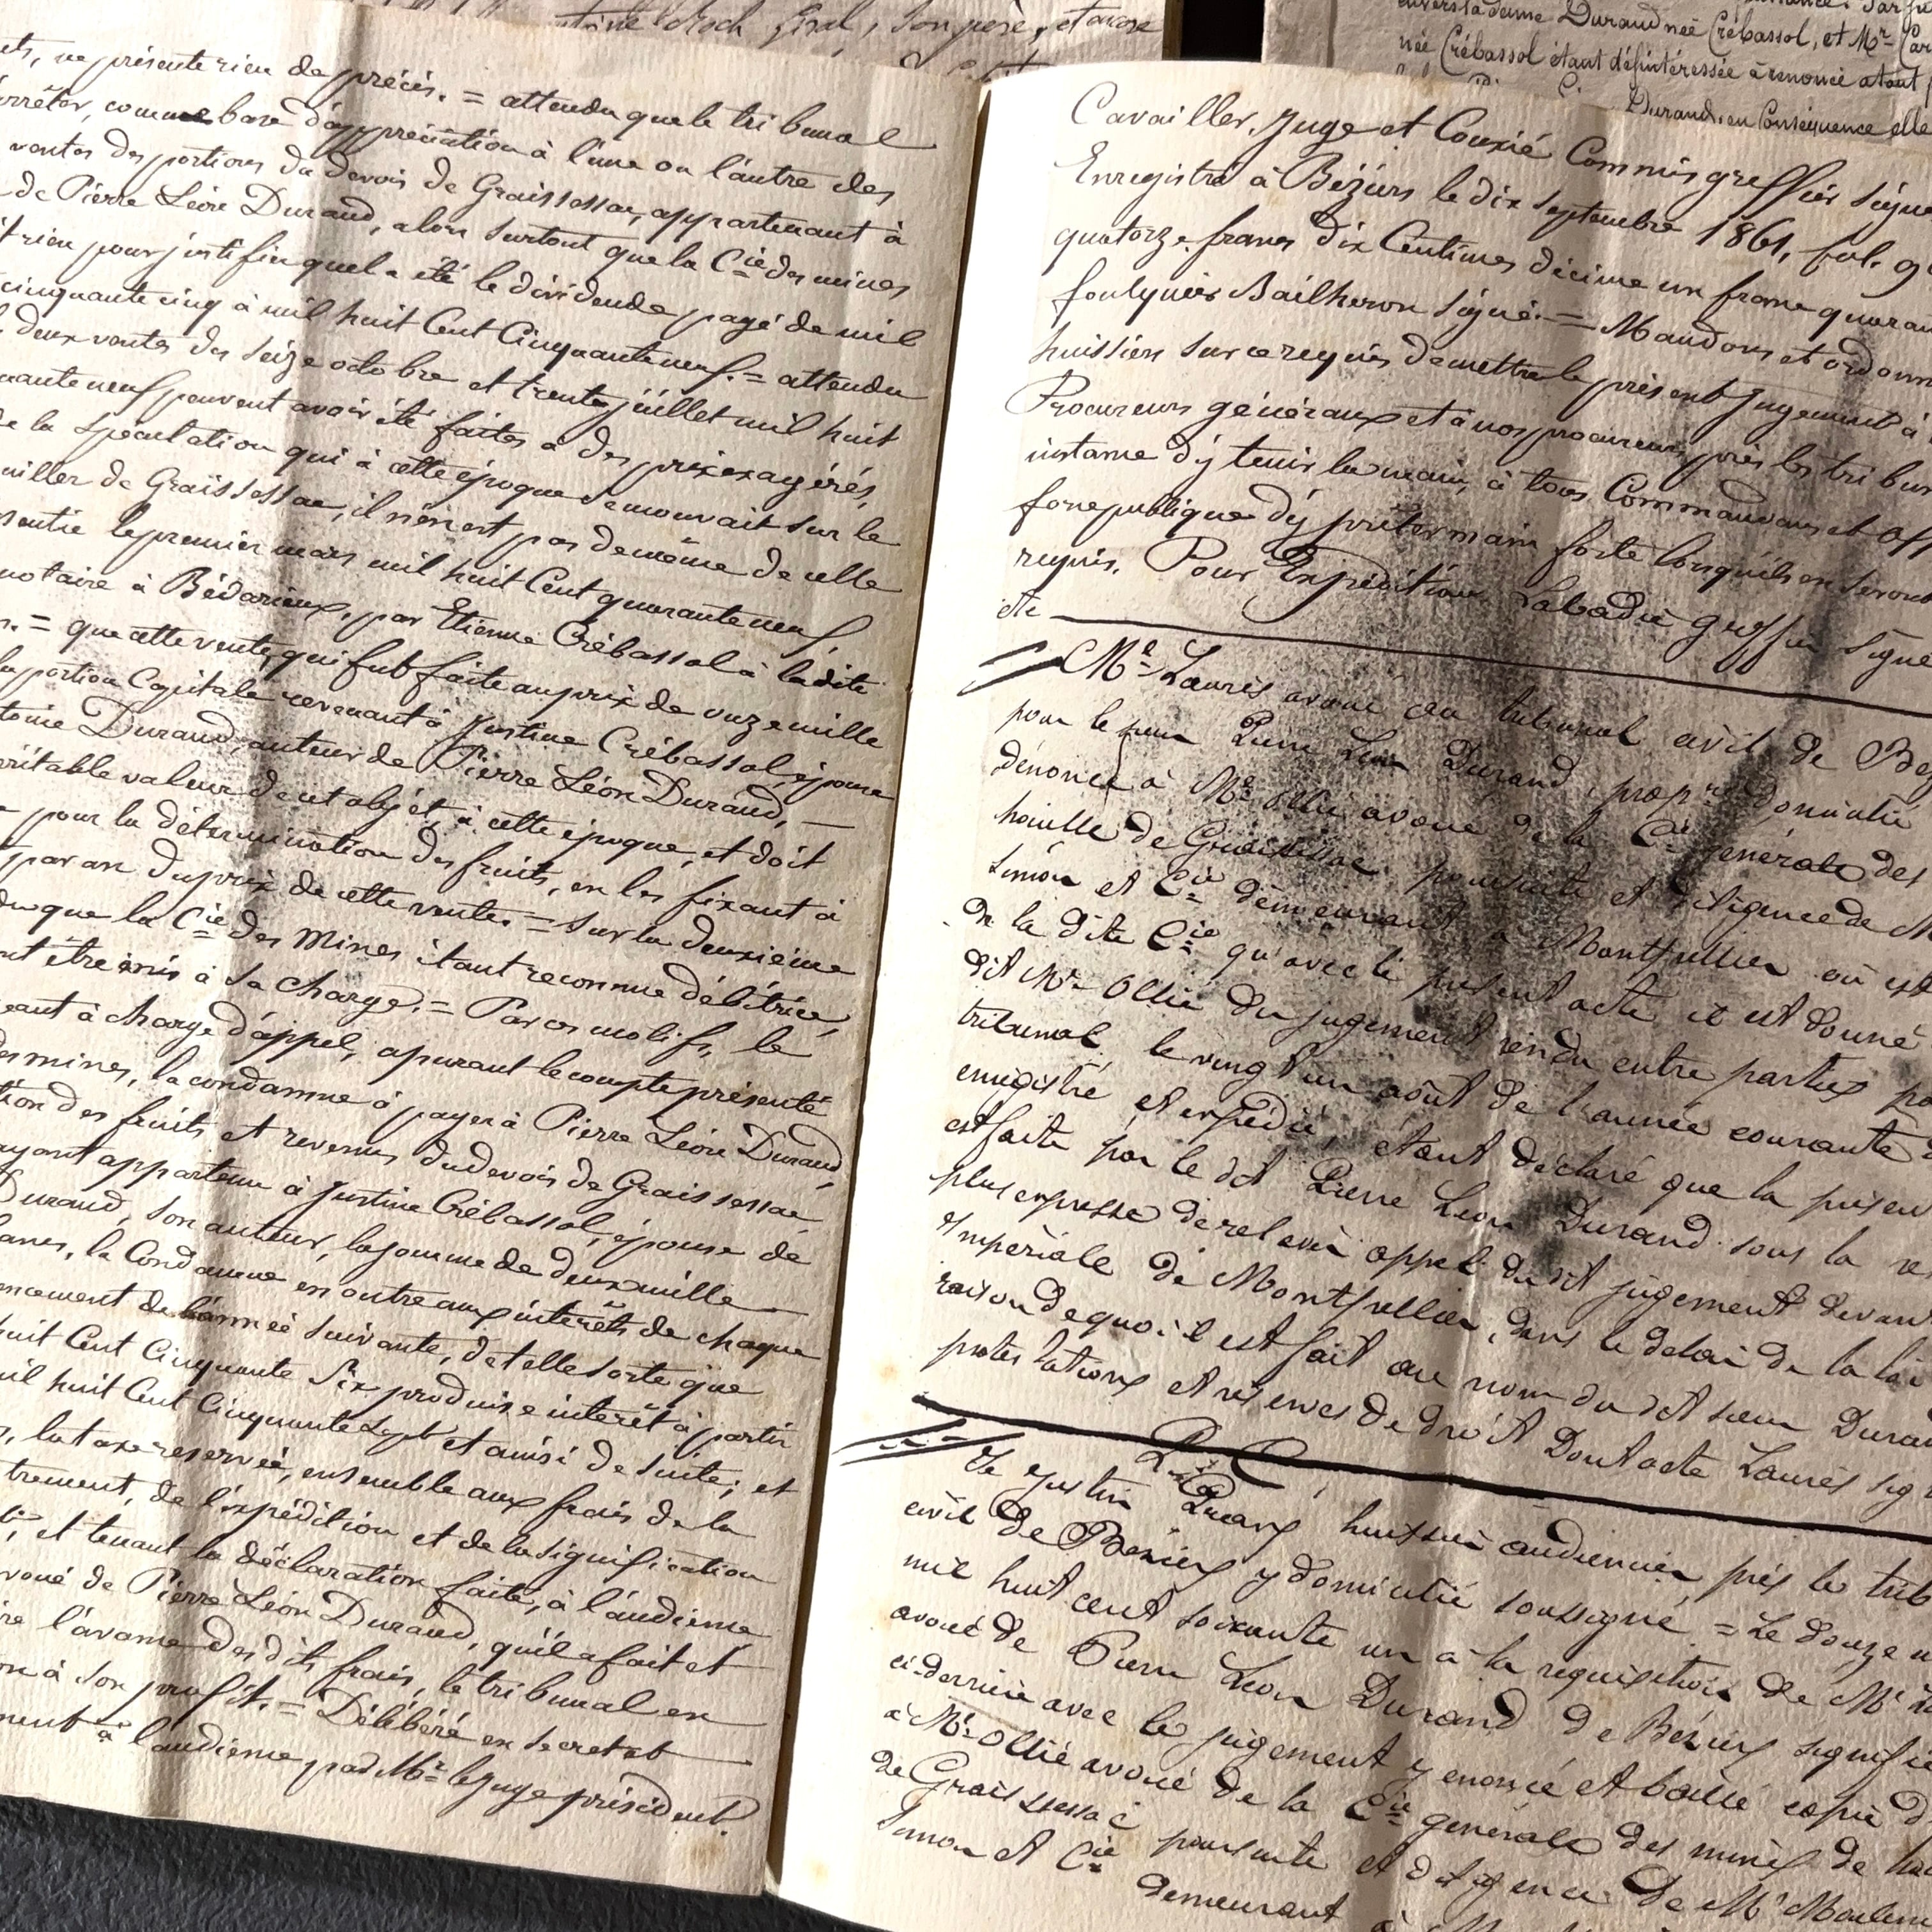 Giral, son père, et avoce
envers la dame Durand née Crébassol, et Mr. Car
née Crébassol étant désintéressée à renoncé a tout
Durand. en Conséquence elle
ets, ne présente rien de précis. = attendu que le tribunal
arrêter, comme base d'appréciation à l'une ou l'autre des
ventes des portions du devois de Graissessac, appartenant à
de Pierre Léon Durand, alors surtout que la Cie des mines
t rien pour justifier quel a été le dividende payé de mil
cinquante cinq à mil huit Cent Cinquante neuf. = attendu
deux ventes des seize octobre et trente juillet mil huit
uante neuf peuvent avoir été faites à des prix exagérés,
de la spéculation qui à cette époque se mouvait sur le
uiller de Graissessac, il n'en est pas de même de celle
sentie le premier mars mil huit Cent quarante neuf,
notaire à Bédarieux, par Etienne Crébassol à ladite
s. = que cette vente, qui fut faite au prix de onze mille
la portion Capitale revenant à Justine Crébassol, épouse
toine Durand, auteur de Pierre Léon Durand, —
éritable valeur de cet objet, à cette époque, et doit
pour la détermination des fruits, en les fixant à
par an du prix de cette vente. = Sur la deuxième
du que la Cie des Mines étant reconnue débitrice,
nt être mis à sa charge. = Par ces motifs, le
eant à charge d'appel, apurant le compte présenté
des mines, la condamne à payer à Pierre Léon Durand,
tion des fruits et revenus du devois de Graissessac
ayant appartenu à Justine Crébassol, épouse de
Durand, son auteur, la somme de deux mille —
ancs, la Condamne en outre aux intérêts de chaque
encement de l'année suivante, de telle sorte que
huit Cent Cinquante Six produise intérêt à partir
il huit Cent Cinquante Sept et ainsi de suite; et
, la taxe reservée, ensemble aux frais de la
trement, de l'expédition et de la signification
et tenant la déclaration faite, à l'audience
voué de Pierre Léon Durand, qu'il a fait et
re l'avance des dits frais, le tribunal en
on à son profit. = Délibéré en secret et
ment à l'audience par Mr. le Juge président.
Cavailler, Juge et Couxié Commis greffier signé
Enregistré à Béziers le dix septembre 1861, fol. 9
quatorze francs dix Centimes décime un franc quaran
foulquier Bailheron signé. = Mandons et ordonn
huissiers sur ce requis de mettre le présent Jugement à
Procureurs généraux et à nos procureurs près les tribun
instance d'y tenir la main, à tous Commandans et Off
force publique d'y prêter main forte lorsqu'ils en seront
requis. Pour Expédition Labadié greffier signé
etc
Me Laurès avoué au tribunal civil de Be
pour le sieur Pierre Léon Durand, propre domicilié
dénonce à Me Ollié avoué de la Cie générale des
houille de Graissessac poursuite et diligence de M
Simon et Cie demeurant à Montpellier où est
de la dite Cie qu'avec le présent acte il est donné
dit Me Ollié du jugement rendu entre parties pa
tribunal le vingt un août de l'année courante
enregistré et expédié, étant déclaré que la présen
est faite par le dit Pierre Léon Durand sous la re
plus expresse de relever appel du dit jugement devan
impériale de Montpellier, dans le délai de la loi
raison de quoi il est fait au nom du dit sieur Duran
protestations et réserves de droit Dont acte Laurès sig
Je Justin huissier audiencier près le trib
civil de Béziers y domicilié soussigné = Le douze
mil huit cent soixante un à la requisition de Me
avoué de Pierre Léon Durand de Béziers signifié
ci-derrière avec le jugement y énoncé et baillé copie d
à Me Ollié avoué de la Cie générale des mines de hou
de Graissessac poursuite et diligence de Mr
Simon et Cie demeurant à